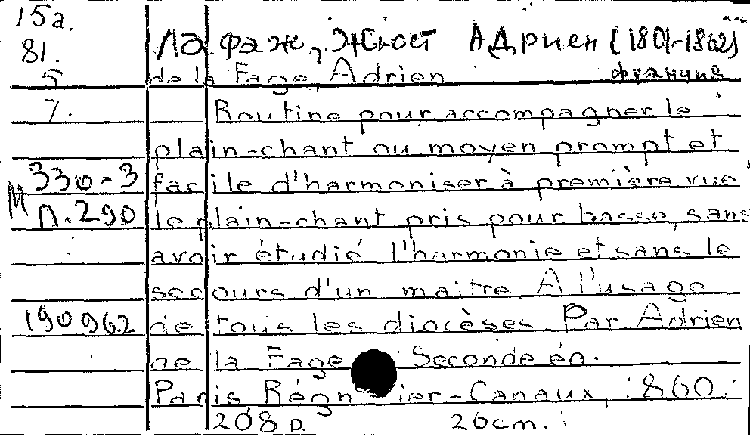 15а.
81.
5
7.
М 330-3
п. 290
190962
Ла фаж, Жюст Адриен (1801-1862)
франция
de la Fage, Adrien
Routine pour accompagner le
plain-chant ou moyen prompt et
facile d'harmoniser à première vue
le plain-chant pris pour basse, sans
avoir étudié l'harmonie et sans le
secours d'un maitre A l'usage
de tous les diocèses Par Adrien
de la Fage Seconde éd.
Paris Régnier-Canaux, 1860.
208 p. 26cm.